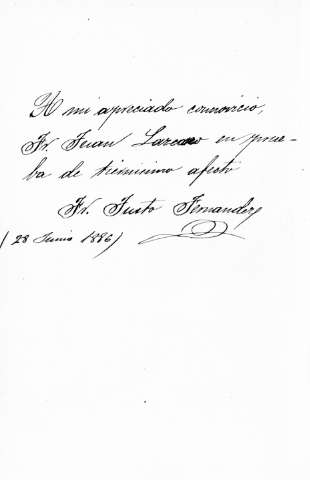 A mi apreciado connovicio,
Fr. Juan Lazcano en prue-
ba de tiernisimo afecto
Fr. Justo Fernandez
(28 Junio 1886)